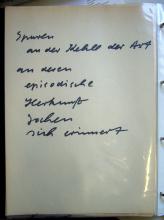 Spuren
an der Stelle der Art
an deren
episodische
Herkunft
Jochen
sich erinnert